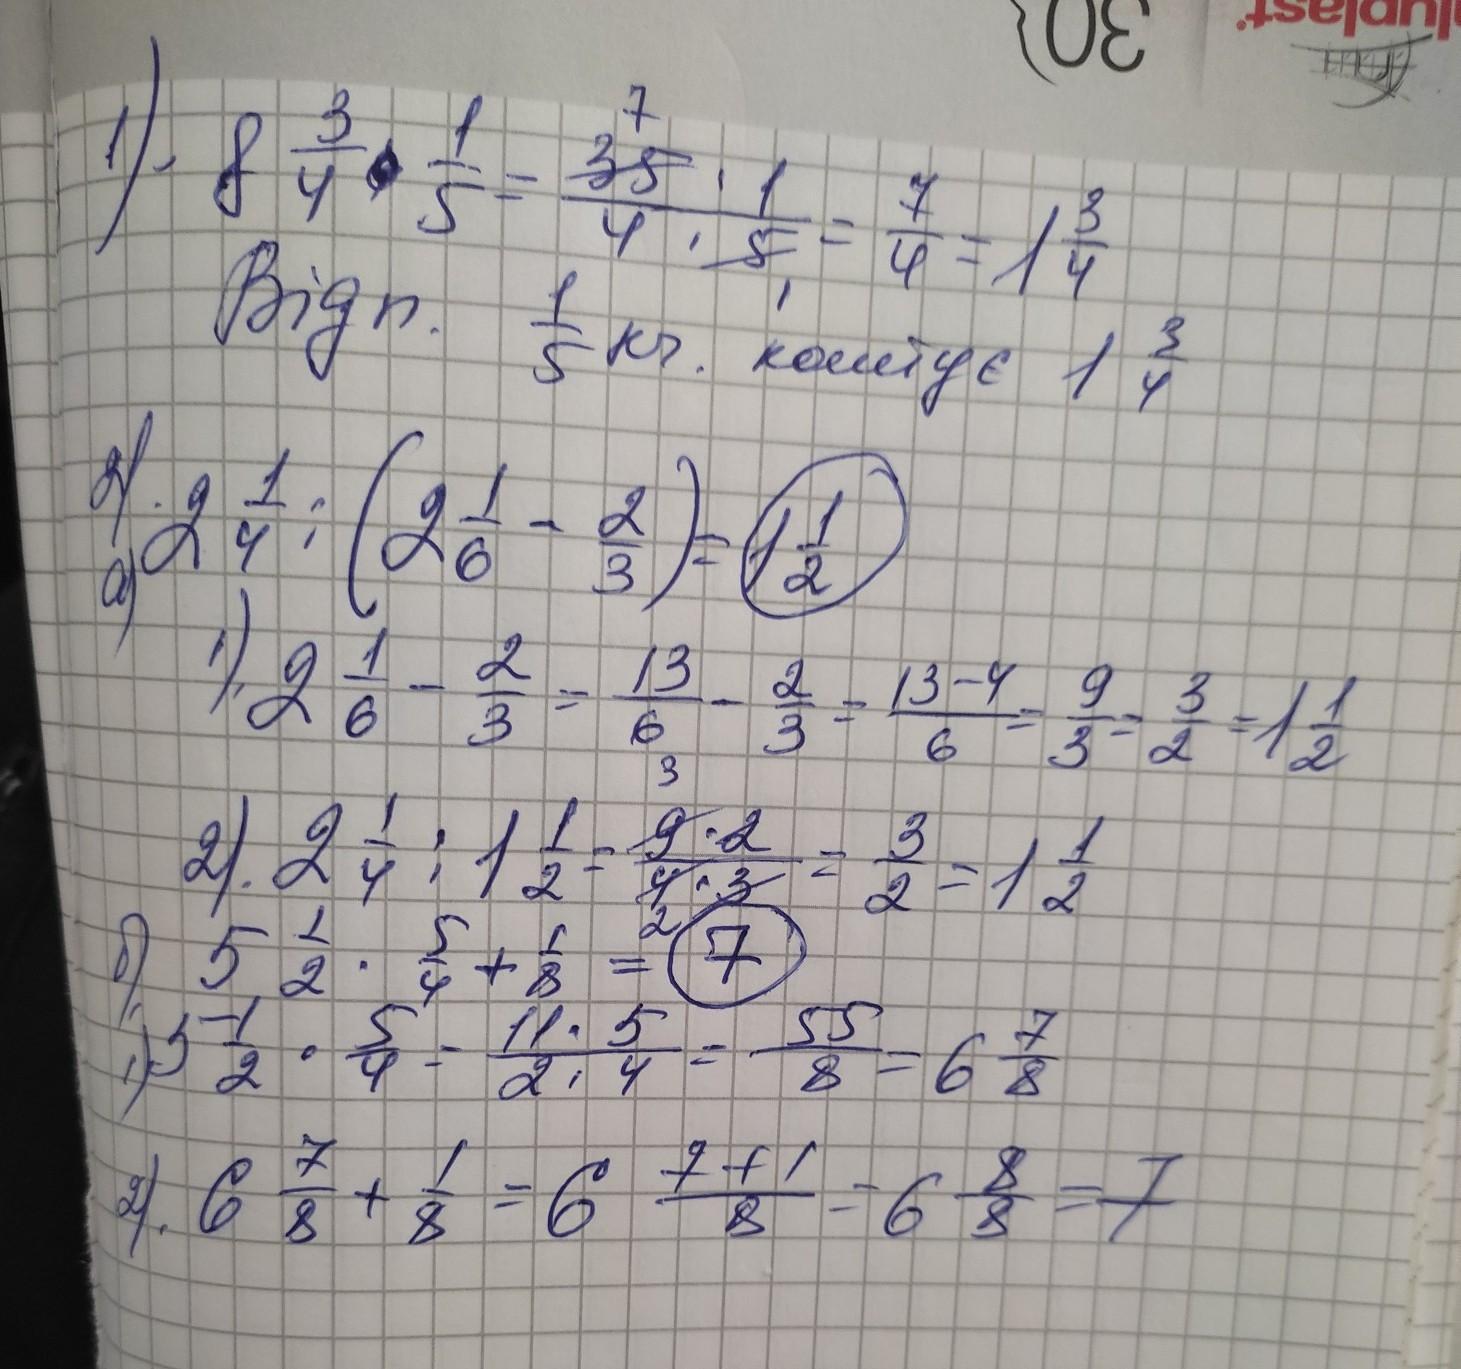 30
aluplast
1). 8 3/4 · 1/5 = 35 · 1 / 4 · 5 = 7/4 = 1 3/4
7
1
Відп. 1/5 кг. коштує 1 3/4
2). 2 1/4 : (2 1/6 - 2/3) = 1 1/2
а)
1). 2 1/6 - 2/3 = 13/6 - 2/3 = 13-4/6 = 9/3 = 3/2 = 1 1/2
2). 2 1/4 : 1 1/2 = 9 · 2 / 4 · 3 = 3/2 = 1 1/2
3
2
б) 5 1/2 · 5/4 + 1/8 = 7
1) 5 1/2 · 5/4 = 11 · 5 / 2 · 4 = 55/8 = 6 7/8
2). 6 7/8 + 1/8 = 6 7+1/8 = 6 8/8 = 7